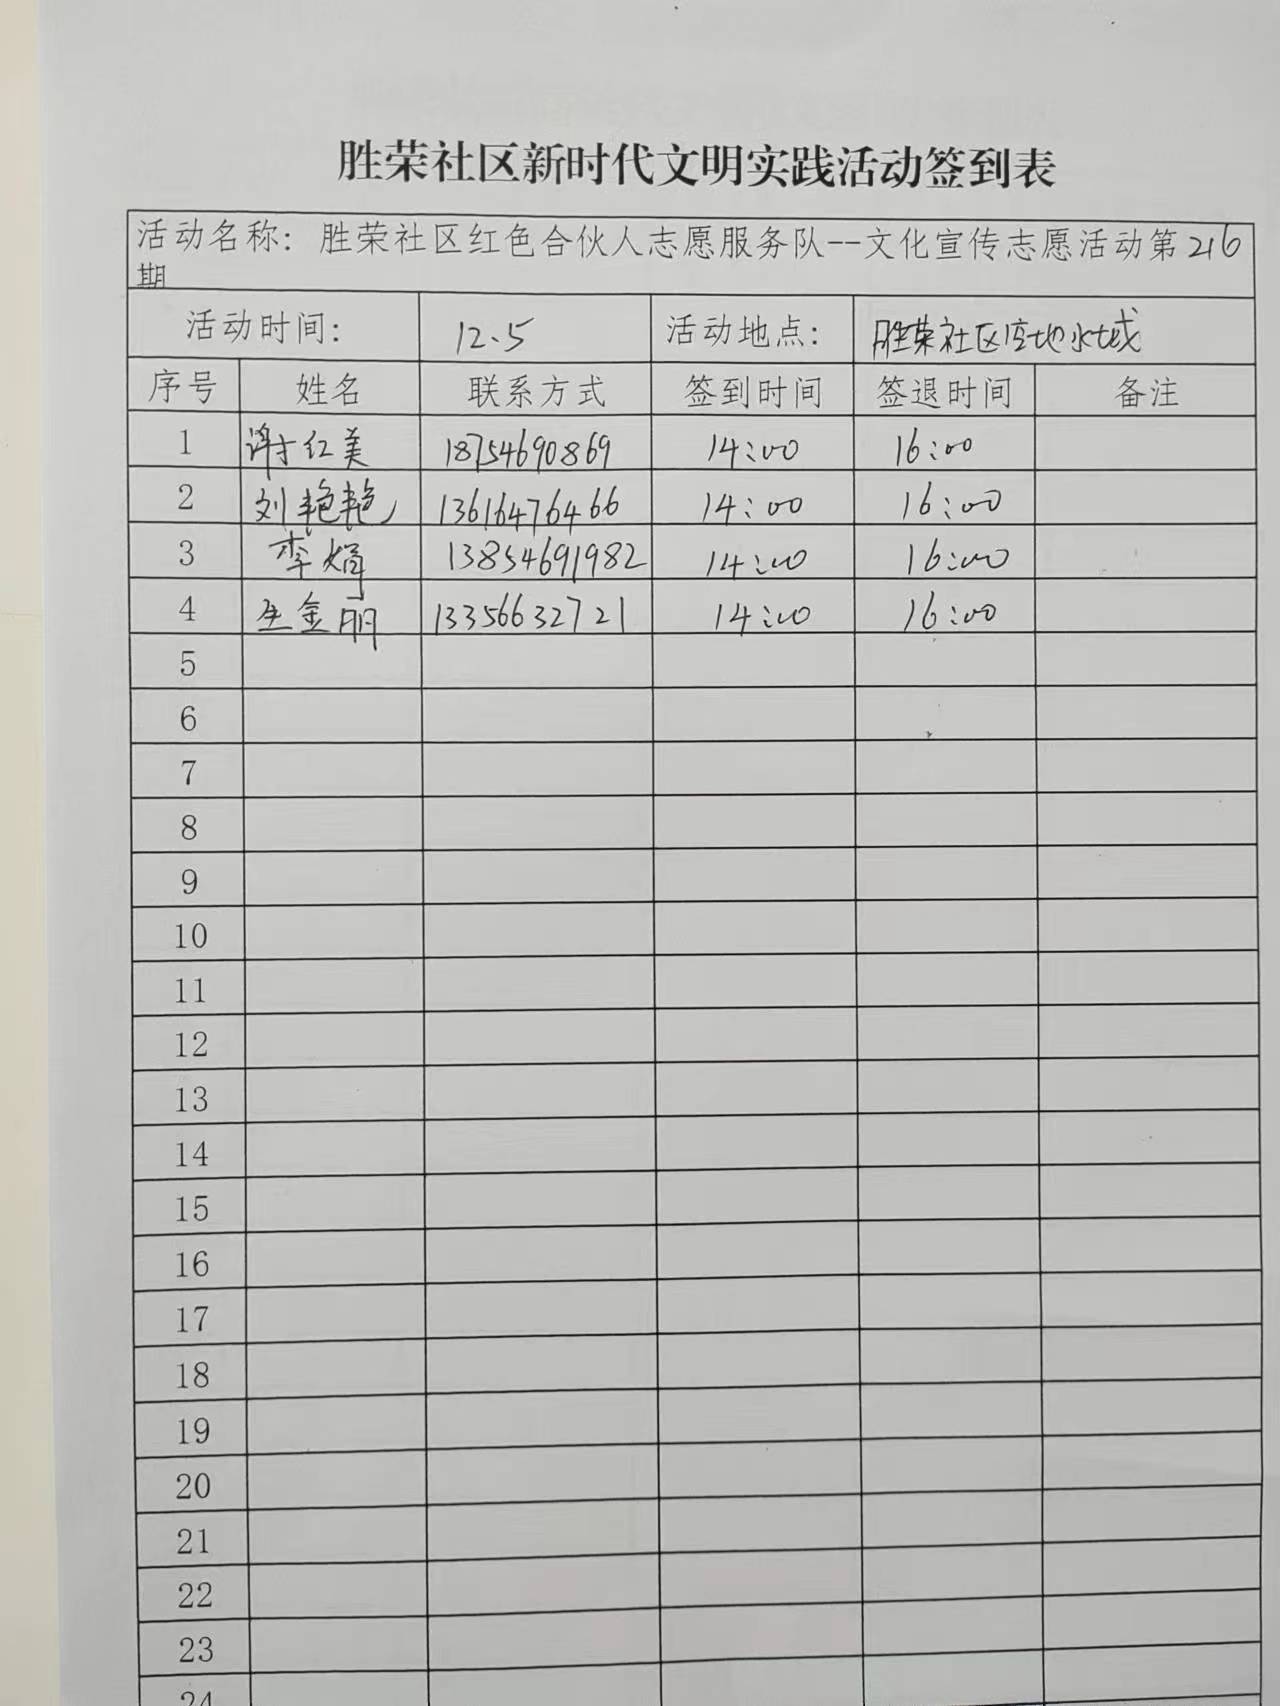 胜荣社区新时代文明实践活动签到表
活动名称：胜荣社区红色合伙人志愿服务队--文化宣传志愿活动第216
期
活动时间： 12.5 活动地点： 胜荣社区空地水城
序号 姓名 联系方式 签到时间 签退时间 备注
1 谢红美 18754690869 14:00 16:00
2 刘艳艳 13616476466 14:00 16:00
3 李娟 13854691982 14:00 16:00
4 金丽 13356632721 14:00 16:00
5
6
7
8
9
10
11
12
13
14
15
16
17
18
19
20
21
22
23
24